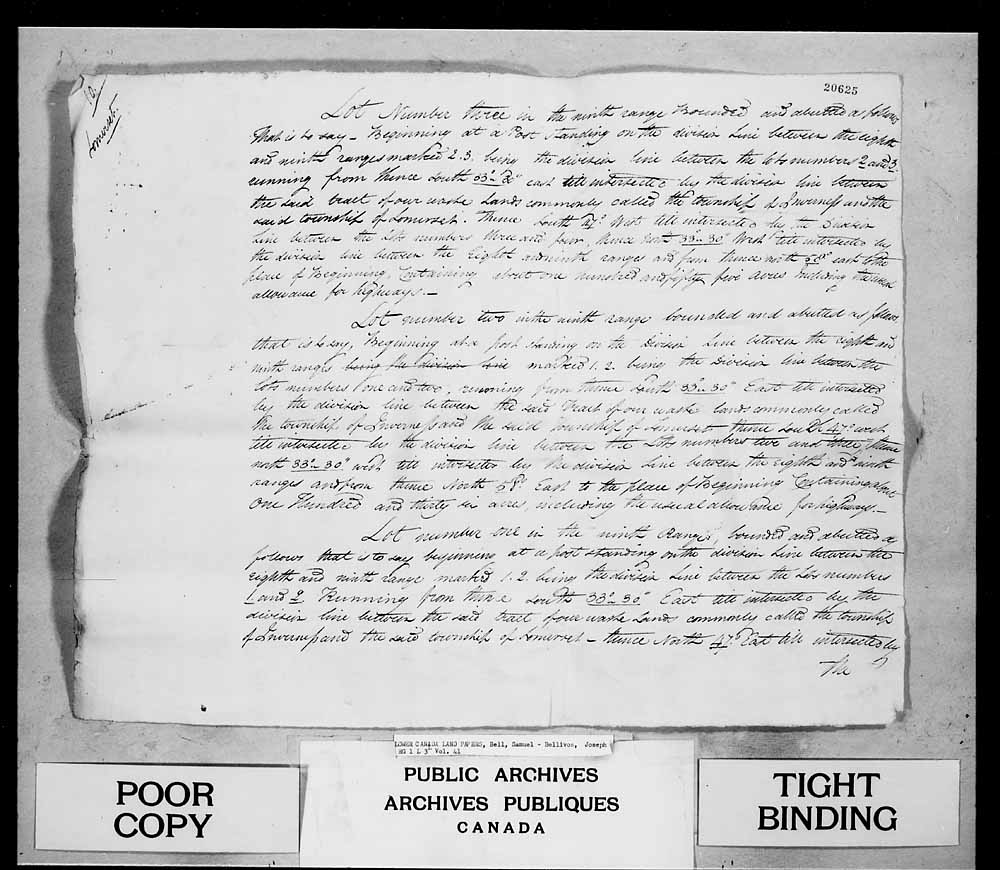 20625
10
Somerset.
Lot Number three in the ninth range Bounded and abutted as follows
that is to say – Beginning at a Post standing on the division Line between the eighth
and ninth ranges marked 2.3. being the division line between the lots numbers 2 and 3.
running from thence South 33°.. 30" east till intersected by the division line between
the said tract of our waste Lands commonly called the township of Inverness and the
said township of Somerset. thence South 47° West till intersected by the Division
Line between the Lots numbers three and four, thence North 33°.. 30" West till intersected by
the division line between the Eighth and ninth ranges and from thence north 58° east to the
place of Beginning, Containing about one hundred and fifty five acres including the usual
allowance for highways. –
Lot number two in the ninth range bounded and abutted as follows
that is to say, Beginning at a post standing on the Division Line between the eighth and
ninth ranges being the division line marked 1. 2. being the Division line between the
lots numbers one and two, running from thence South 33°.. 30" East till intersected
by the division line between the said Tract of our waste lands commonly called
the township of Inverness and the said township of Somerset thence South 47° west
till intersected by the division line between the Lots numbers two and three, thence
north 33°.. 30" west till intersected by the division Line between the eighth and ninth
ranges and from thence North 58° East to the place of Beginning Containing about
One Hundred and thirty six acres, including the usual allowance for highways. –
Lot number one in the ninth Range, bounded and abutted as
follows that is to say beginning at a post standing on the division Line between the
eighth and ninth range marked 1. 2. being the division Line between the Lots numbers
1 and 2 Running from thence South 33°.. 30" East till intersected by the
division line between the said tract of our waste Lands commonly called the township
of Inverness and the said township of Somerset – thence North 47° East till intersected by
the
LOWER CANADA LAND PAPERS, Bell, Samuel - Bellivos, Joseph
RG 1 L 3" Vol. 41
PUBLIC ARCHIVES
ARCHIVES PUBLIQUES
CANADA
POOR
COPY
TIGHT
BINDING